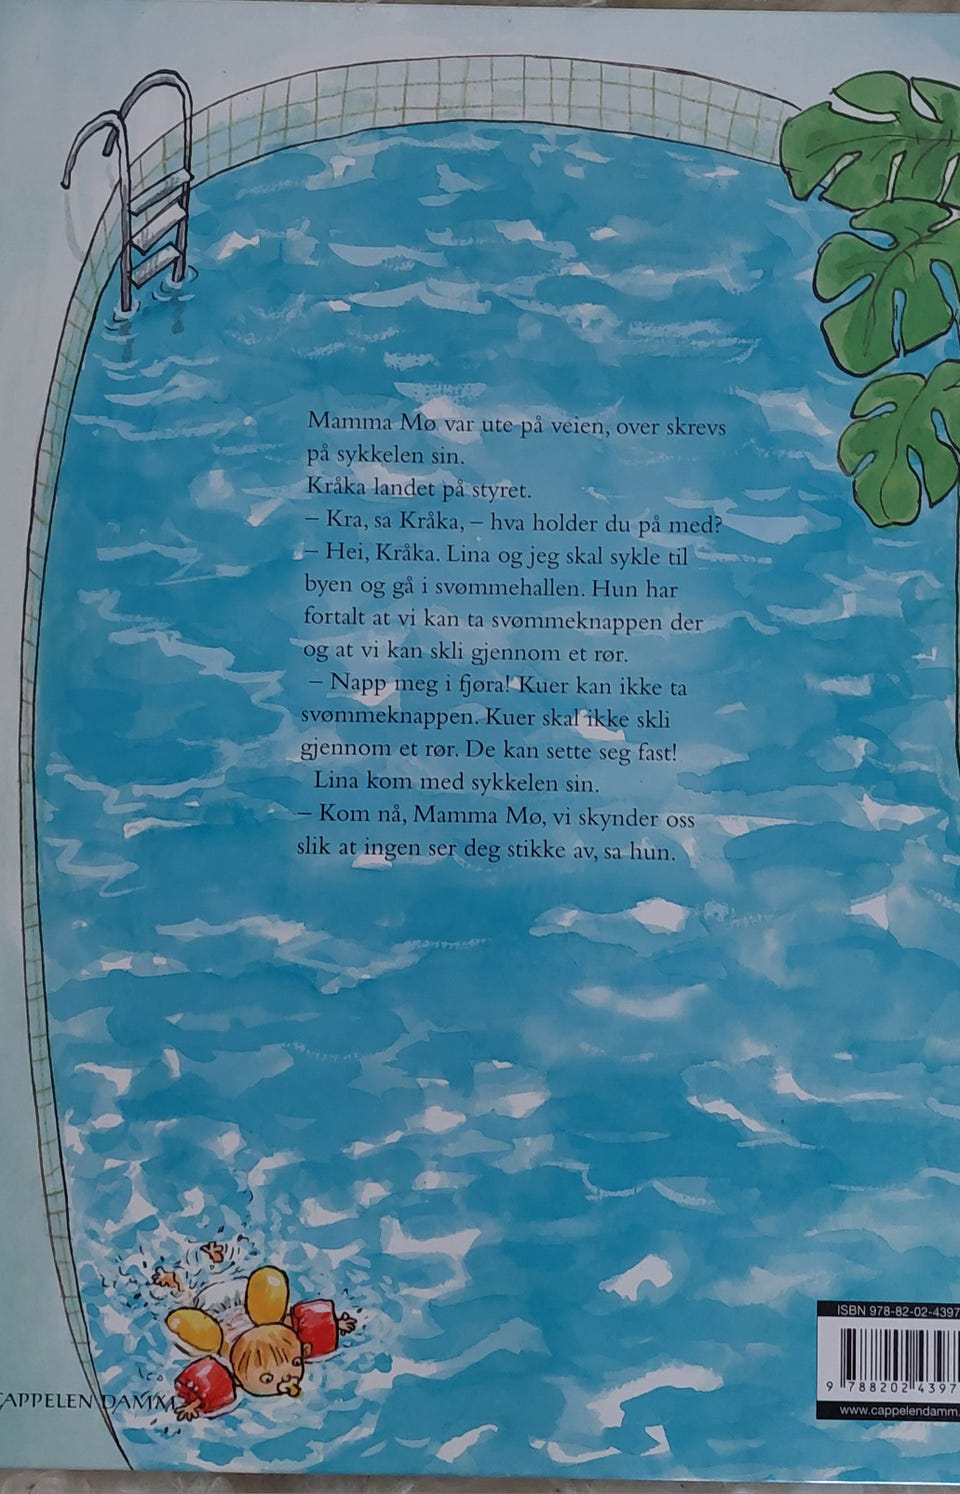 Mamma Mø var ute på veien, over skrevs
på sykkelen sin.
Kråka landet på styret.
– Kra, sa Kråka, – hva holder du på med?
– Hei, Kråka. Lina og jeg skal sykle til
byen og gå i svømmehallen. Hun har
fortalt at vi kan ta svømmeknappen der
og at vi kan skli gjennom et rør.
– Napp meg i fjøra! Kuer kan ikke ta
svømmeknappen. Kuer skal ikke skli
gjennom et rør. De kan sette seg fast!
Lina kom med sykkelen sin.
– Kom nå, Mamma Mø, vi skynder oss
slik at ingen ser deg stikke av, sa hun.
ISBN 978-82-02-4397
9 788202 4397
www.cappelendamm.
APPELEN DAMM